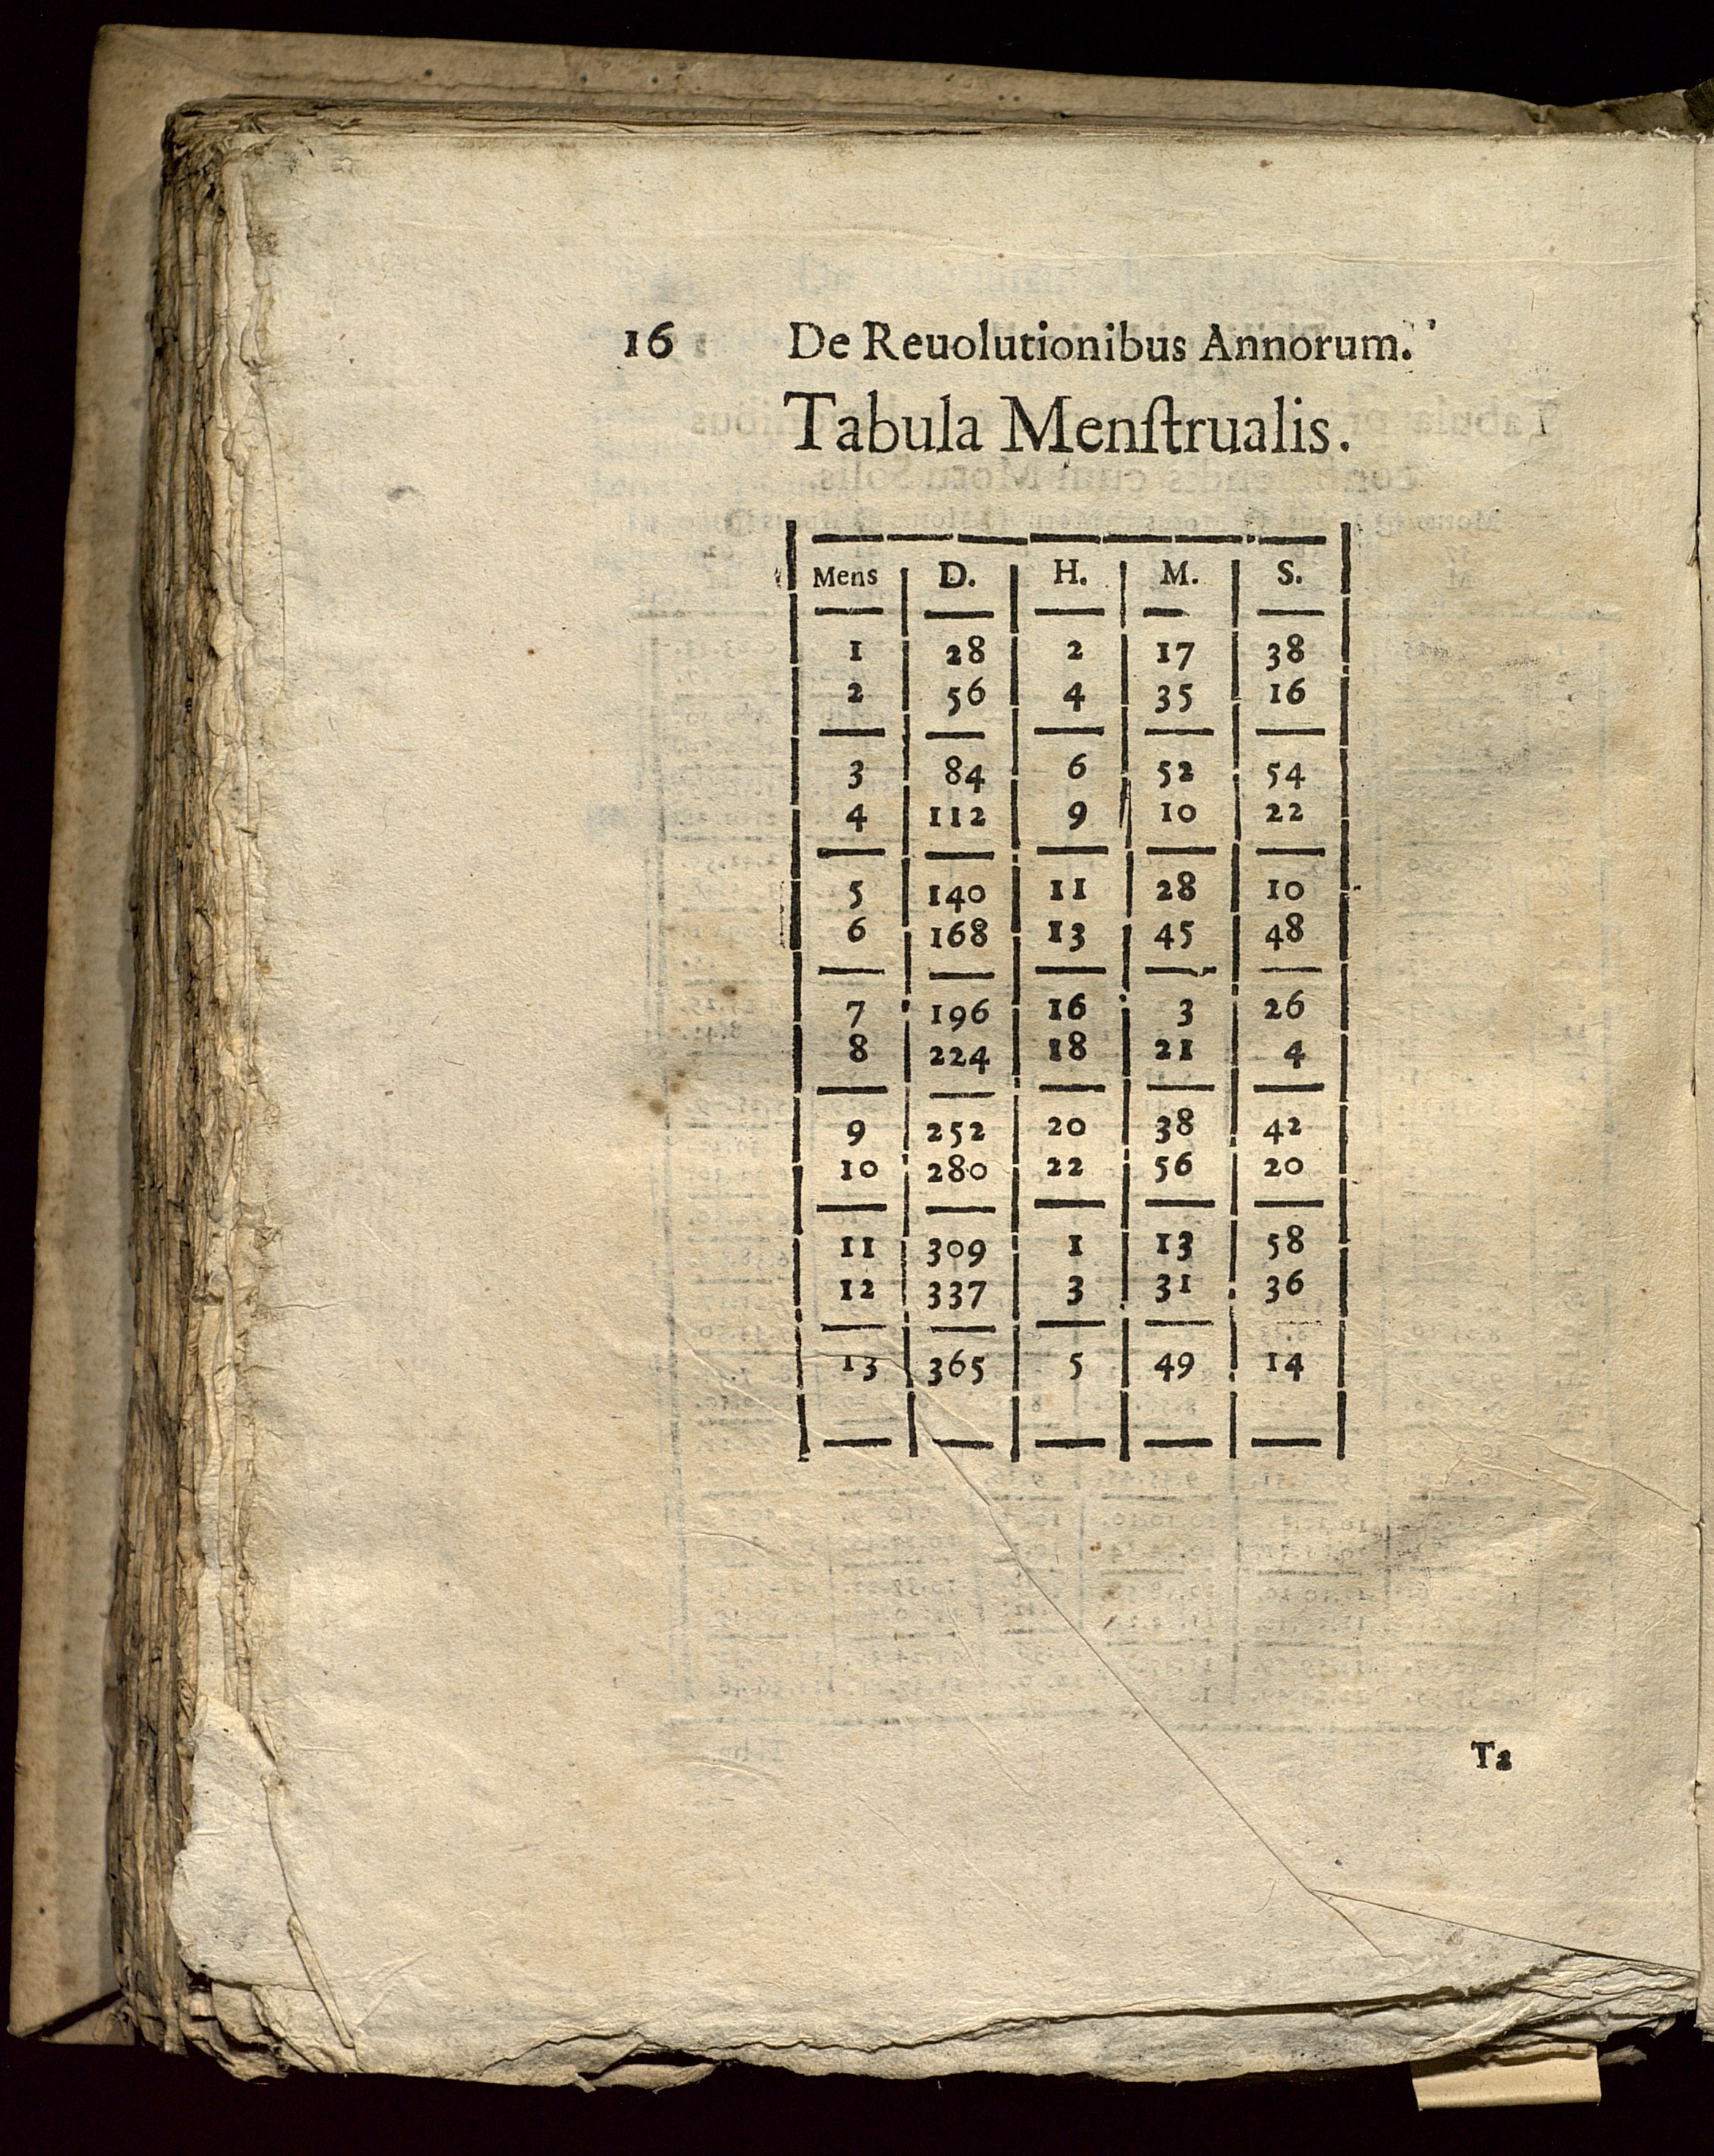 16 De Reuolutionibus Annorum.
Tabula Menſtrualis.
Mens D. H. M. S.
1 28 2 17 38
2 56 4 35 16
3 84 6 52 54
4 112 9 10 22
5 140 11 28 10
6 168 13 45 48
7 196 16 3 26
8 224 18 21 4
9 252 20 38 42
10 280 22 56 20
11 309 1 13 58
12 337 3 31 36
13 365 5 49 14
Ta